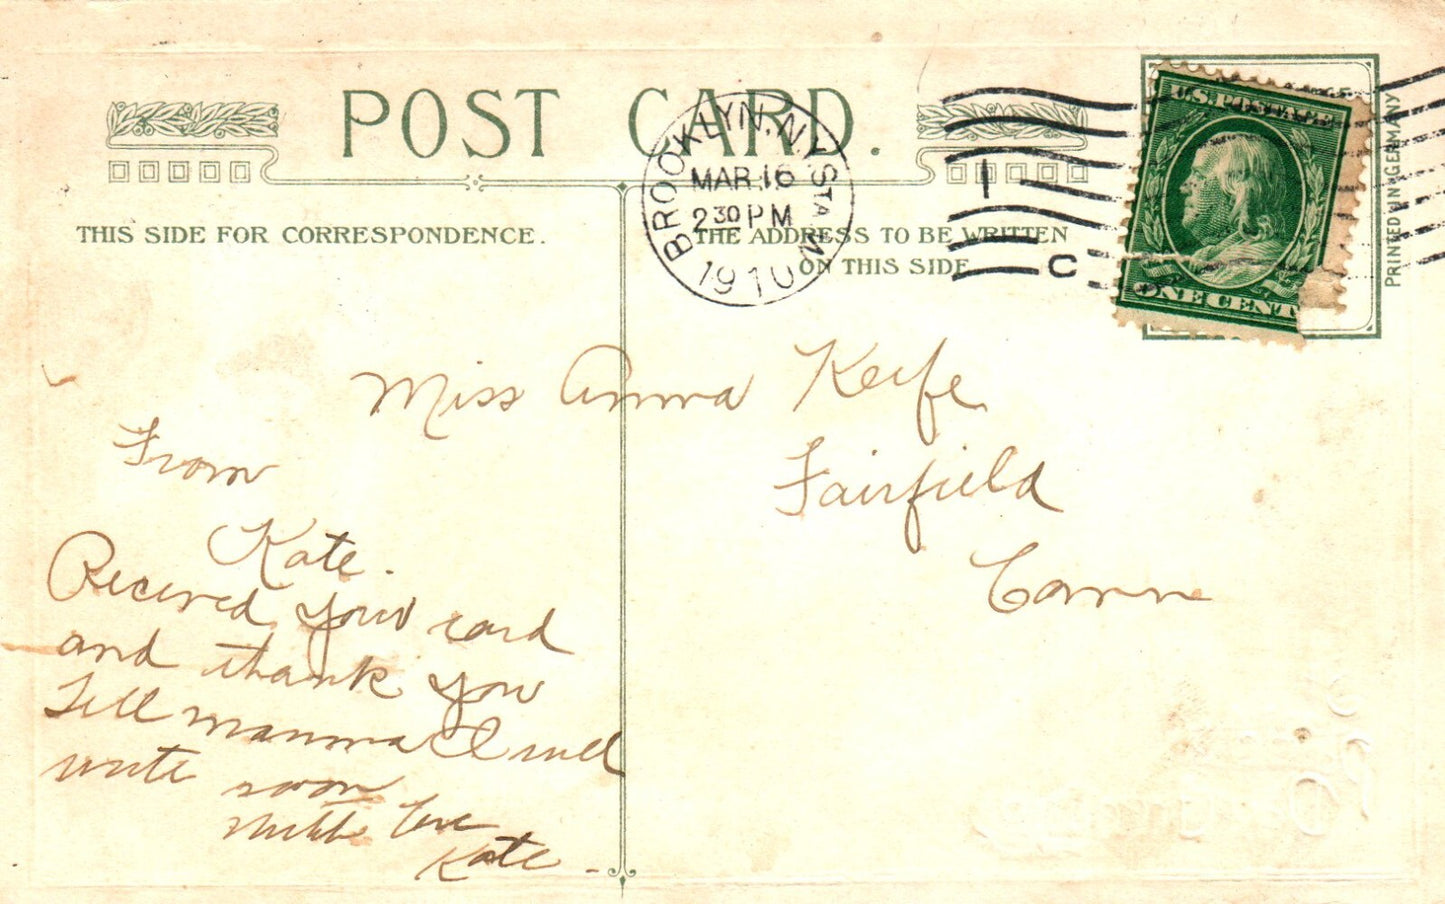 POST CARD.
THIS SIDE FOR CORRESPONDENCE.
THE ADDRESS TO BE WRITTEN
ON THIS SIDE
BROOKLYN, N.Y. STA. W
MAR 16
2 30 PM
1910
1
C
U.S. POSTAGE
ONE CENT
PRINTED IN GERMANY
Miss Anna Keefe
Fairfield
Conn
From
Kate.
Received your card
and thank you
Tell mamma I will
write soon
love
Kate.